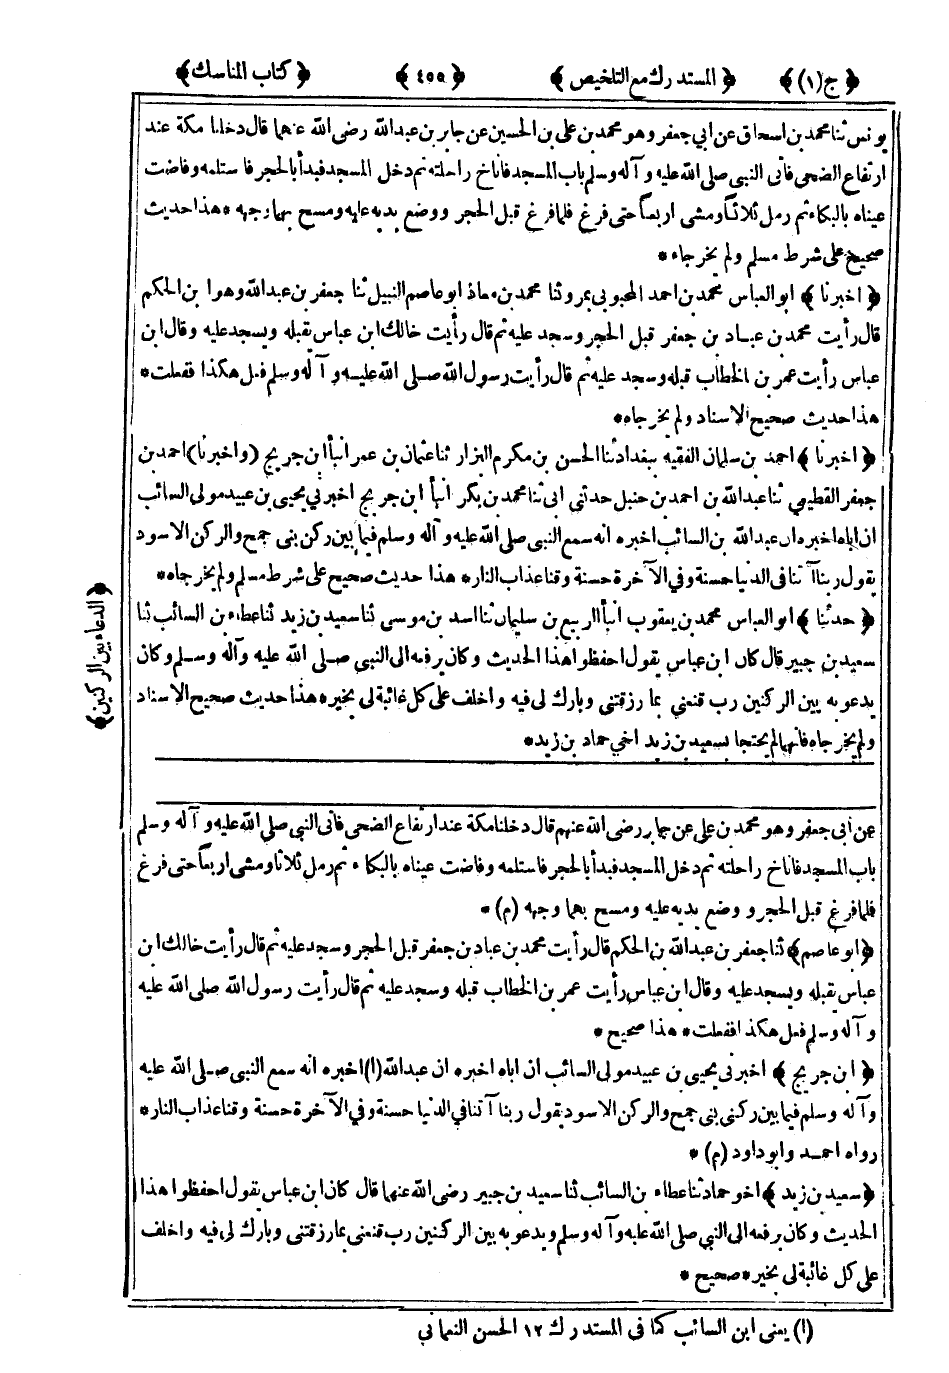 ﴿ج(١)﴾ ﴿المستدرك مع التلخيص﴾ ﴿٤٥٥﴾ ﴿كتاب المناسك﴾
يونس ثنا محمد بن اسحاق عن ابي جعفر وهو محمد بن علي بن الحسين عن جابر بن عبد الله رضى الله عنهما قال دخلنا مكة عند
ارتفاع الضحى فأتى النبي صلى الله عليه وآله وسلم باب المسجد فاناخ راحلته ثم دخل المسجد فبدأ بالحجر فاستلمه وفاضت
عيناه بالبكاء ثم رمل ثلاثا ومشى اربعاً حتى فرغ فلما فرغ قبل الحجر ووضع يديه عليه ومسح بهما وجهه * هذا حديث
صحيح على شرط مسلم ولم يخرجاه *
﴿اخبرنا﴾ ابو العباس محمد بن احمد المحبوبي بمرو ثنا محمد بن معاذ ابو عاصم النبيل ثنا جعفر بن عبد الله وهو ابن الحكم
قال رأيت محمد بن عباد بن جعفر قبل الحجر وسجد عليه ثم قال رأيت خالك ابن عباس يقبله ويسجد عليه وقال ابن
عباس رأيت عمر بن الخطاب قبله وسجد عليه ثم قال رأيت رسول الله صلى الله عليه وآله وسلم فعل هكذا ففعلت *
هذا حديث صحيح الاسناد ولم يخرجاه *
﴿اخبرنا﴾ احمد بن سلمان الفقيه ببغداد ثنا الحسن بن مكرم البزار ثنا عثمان بن عمر انبأ ابن جريج (واخبرنا) احمد بن
جعفر القطيعي ثنا عبد الله بن احمد بن حنبل حدثني ابى ثنا محمد بن بكر انبأ ابن جريج اخبرني يحيى بن عبيد مولى السائب
ان اباه اخبره ان عبد الله بن السائب اخبره انه سمع النبي صلى الله عليه وآله وسلم فيما بين ركن بنى جمح والركن الاسود
يقول ربنا آتنا فى الدنيا حسنة وفي الآخرة حسنة وقنا عذاب النار * هذا حديث صحيح على شرط مسلم ولم يخرجاه *
﴿حدثنا﴾ ابو العباس محمد بن يعقوب انبأ الربيع بن سليمان ثنا اسد بن موسى ثنا سعيد بن زيد ثنا عطاء بن السائب ثنا
سعيد بن جبير قال كان ابن عباس يقول احفظوا هذا الحديث وكان يرفعه الى النبي صلى الله عليه وآله وسلم وكان
يدعو به بين الركنين رب قنعني بما رزقتني وبارك لى فيه واخلف على كل غائبة لى بخير * هذا حديث صحيح الاسناد
ولم يخرجاه فانهما لم يحتجا بسعيد بن زيد اخي حماد بن زيد *
﴿الدعاء بين الركنين﴾
عن ابي جعفر وهو محمد بن علي عن جابر رضى الله عنهم قال دخلنا مكة عند ارتفاع الضحى فأتى النبي صلى الله عليه وآله وسلم
باب المسجد فاناخ راحلته ثم دخل المسجد فبدأ بالحجر فاستلمه وفاضت عيناه بالبكاء ثم رمل ثلاثا ومشى اربعاً حتى فرغ
فلما فرغ قبل الحجر ووضع يديه عليه ومسح بهما وجهه (م) *
﴿ابو عاصم﴾ ثنا جعفر بن عبد الله بن الحكم قال رأيت محمد بن عباد بن جعفر قبل الحجر وسجد عليه ثم قال رأيت خالك ابن
عباس يقبله ويسجد عليه وقال ابن عباس رأيت عمر بن الخطاب قبله وسجد عليه ثم قال رأيت رسول الله صلى الله عليه
وآله وسلم فعل هكذا ففعلت * هذا صحيح *
﴿ابن جريج﴾ اخبرنى يحيى بن عبيد مولى السائب ان اباه اخبره ان عبد الله(١) اخبره انه سمع النبي صلى الله عليه
وآله وسلم فيما بين ركنى بنى جمح والركن الاسود يقول ربنا آتنا في الدنيا حسنة وفي الآخرة حسنة وقنا عذاب النار *
رواه احمد وابو داود (م) *
﴿سعيد بن زيد﴾ اخو حماد ثنا عطاء بن السائب ثنا سعيد بن جبير رضى الله عنهما قال كان ابن عباس يقول احفظوا هذا
الحديث وكان يرفعه الى النبي صلى الله عليه وآله وسلم ويدعو به بين الركنين رب قنعنى بما رزقتنى وبارك لى فيه واخلف
على كل غائبة لى بخير * صحيح *
(١) يعنى ابن السائب كما فى المستدرك ١٢ الحسن النعماني